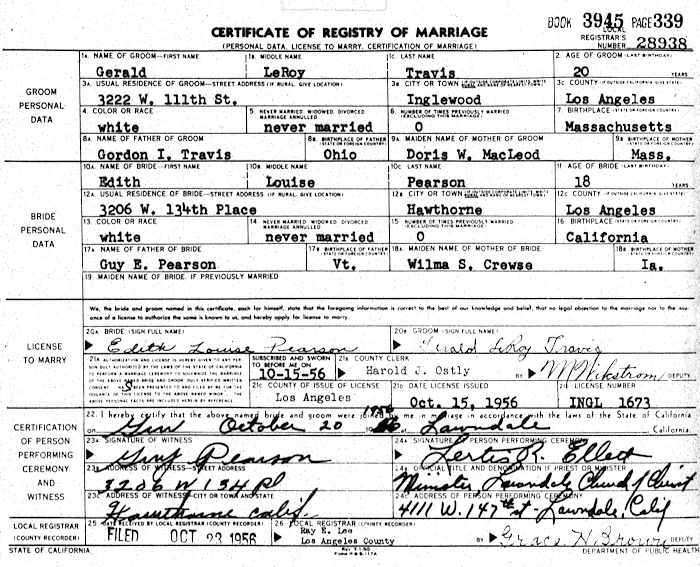 BOOK 3945 PAGE 339
CERTIFICATE OF REGISTRY OF MARRIAGE
(PERSONAL DATA, LICENSE TO MARRY, CERTIFICATION OF MARRIAGE)
LOCAL REGISTRAR'S NUMBER 28938
GROOM PERSONAL DATA
1A. NAME OF GROOM—FIRST NAME 1B. MIDDLE NAME 1C. LAST NAME 2. AGE OF GROOM (LAST BIRTHDAY)
Gerald LeRoy Travis 20 YEARS
3A. USUAL RESIDENCE OF GROOM—STREET ADDRESS (IF RURAL, GIVE LOCATION) 3B CITY OR TOWN 3C COUNTY
3222 W. 111th St. Inglewood Los Angeles
4. COLOR OR RACE 5 NEVER MARRIED, WIDOWED, DIVORCED, MARRIAGE ANNULLED 6. NUMBER OF TIMES PREVIOUSLY MARRIED (EXCLUDING THIS MARRIAGE) 7. BIRTHPLACE (STATE OR FOREIGN COUNTRY)
white never married 0 Massachusetts
8A. NAME OF FATHER OF GROOM 8B. BIRTHPLACE OF FATHER (STATE OR FOREIGN COUNTRY) 9A. MAIDEN NAME OF MOTHER OF GROOM 9B BIRTHPLACE OF MOTHER (STATE OR FOREIGN COUNTRY)
Gordon I. Travis Ohio Doris W. MacLeod Mass.
BRIDE PERSONAL DATA
10A. NAME OF BRIDE—FIRST NAME 10B. MIDDLE NAME 10C LAST NAME 11 AGE OF BRIDE (LAST BIRTHDAY)
Edith Louise Pearson 18 YEARS
12A. USUAL RESIDENCE OF BRIDE—STREET ADDRESS (IF RURAL, GIVE LOCATION) 12B CITY OR TOWN 12C COUNTY
3206 W. 134th Place Hawthorne Los Angeles
13. COLOR OR RACE 14 NEVER MARRIED, WIDOWED, DIVORCED, MARRIAGE ANNULLED 15 NUMBER OF TIMES PREVIOUSLY MARRIED (EXCLUDING THIS MARRIAGE) 16 BIRTHPLACE (STATE OR FOREIGN COUNTRY)
white never married 0 California
17A NAME OF FATHER OF BRIDE 17B BIRTHPLACE OF FATHER (STATE OR FOREIGN COUNTRY) 18A. MAIDEN NAME OF MOTHER OF BRIDE 18B BIRTHPLACE OF MOTHER (STATE OR FOREIGN COUNTRY)
Guy E. Pearson Vt. Wilma S. Crewse Ia.
19. MAIDEN NAME OF BRIDE, IF PREVIOUSLY MARRIED
We, the bride and groom named in this certificate, each for himself, state that the foregoing information is correct to the best of our knowledge and belief, that no legal objection to the marriage nor to the issuance of a license to authorize the same is known to us, and hereby apply for license to marry.
LICENSE TO MARRY
20A BRIDE (SIGN FULL NAME) 20B GROOM (SIGN FULL NAME)
Edith Louise Pearson Gerald LeRoy Travis
21A AUTHORIZATION AND LICENSE IS HEREBY GIVEN TO ANY PERSON DULY AUTHORIZED BY THE LAWS OF THE STATE OF CALIFORNIA TO PERFORM A MARRIAGE CEREMONY TO SOLEMNIZE THE MARRIAGE OF THE ABOVE NAMED BRIDE AND GROOM.
SUBSCRIBED AND SWORN TO BEFORE ME ON
10-15-56
21B COUNTY CLERK
Harold J. Ostly BY DEPUTY
21C COUNTY OF ISSUE OF LICENSE 21D DATE LICENSE ISSUED 21E LICENSE NUMBER
Los Angeles Oct. 15, 1956 INGL 1673
CERTIFICATION OF PERSON PERFORMING CEREMONY AND WITNESS
22. I hereby certify that the above named bride and groom were joined by me in marriage in accordance with the laws of the State of California
on October 20 1956 Lawndale California.
23A SIGNATURE OF WITNESS 24A SIGNATURE OF PERSON PERFORMING CEREMONY
Guy Pearson Lertis R. Ellett
23B ADDRESS OF WITNESS—STREET ADDRESS 24B OFFICIAL TITLE AND DENOMINATION IF PRIEST OR MINISTER
3206 W 134 Pl Minister Lawndale Church of Christ
23C ADDRESS OF WITNESS—CITY OR TOWN AND STATE 24C ADDRESS OF PERSON PERFORMING CEREMONY
Hawthorne Calif. 4111 W. 147th st - Lawndale, Calif
LOCAL REGISTRAR (COUNTY RECORDER)
25 DATE RECEIVED BY LOCAL REGISTRAR (COUNTY RECORDER) 26 LOCAL REGISTRAR (COUNTY RECORDER)
FILED OCT 23 1956 Ray E. Lee
Los Angeles County BY Grace N. Brown DEPUTY
STATE OF CALIFORNIA Rev. 7-1-50 DEPARTMENT OF PUBLIC HEALTH